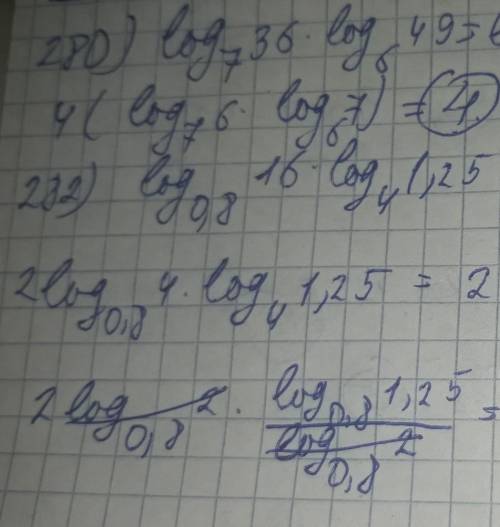 280) log₇36 · log₆49 =
4(log₇6 · log₆7) = 4
282) log₀,₈ 16 · log₄ 1,25
2log₀,₈ 4 · log₄ 1,25 = 2
2 log₀,₈ 2 · log₀,₈ 1,25 / log₀,₈ 2 =